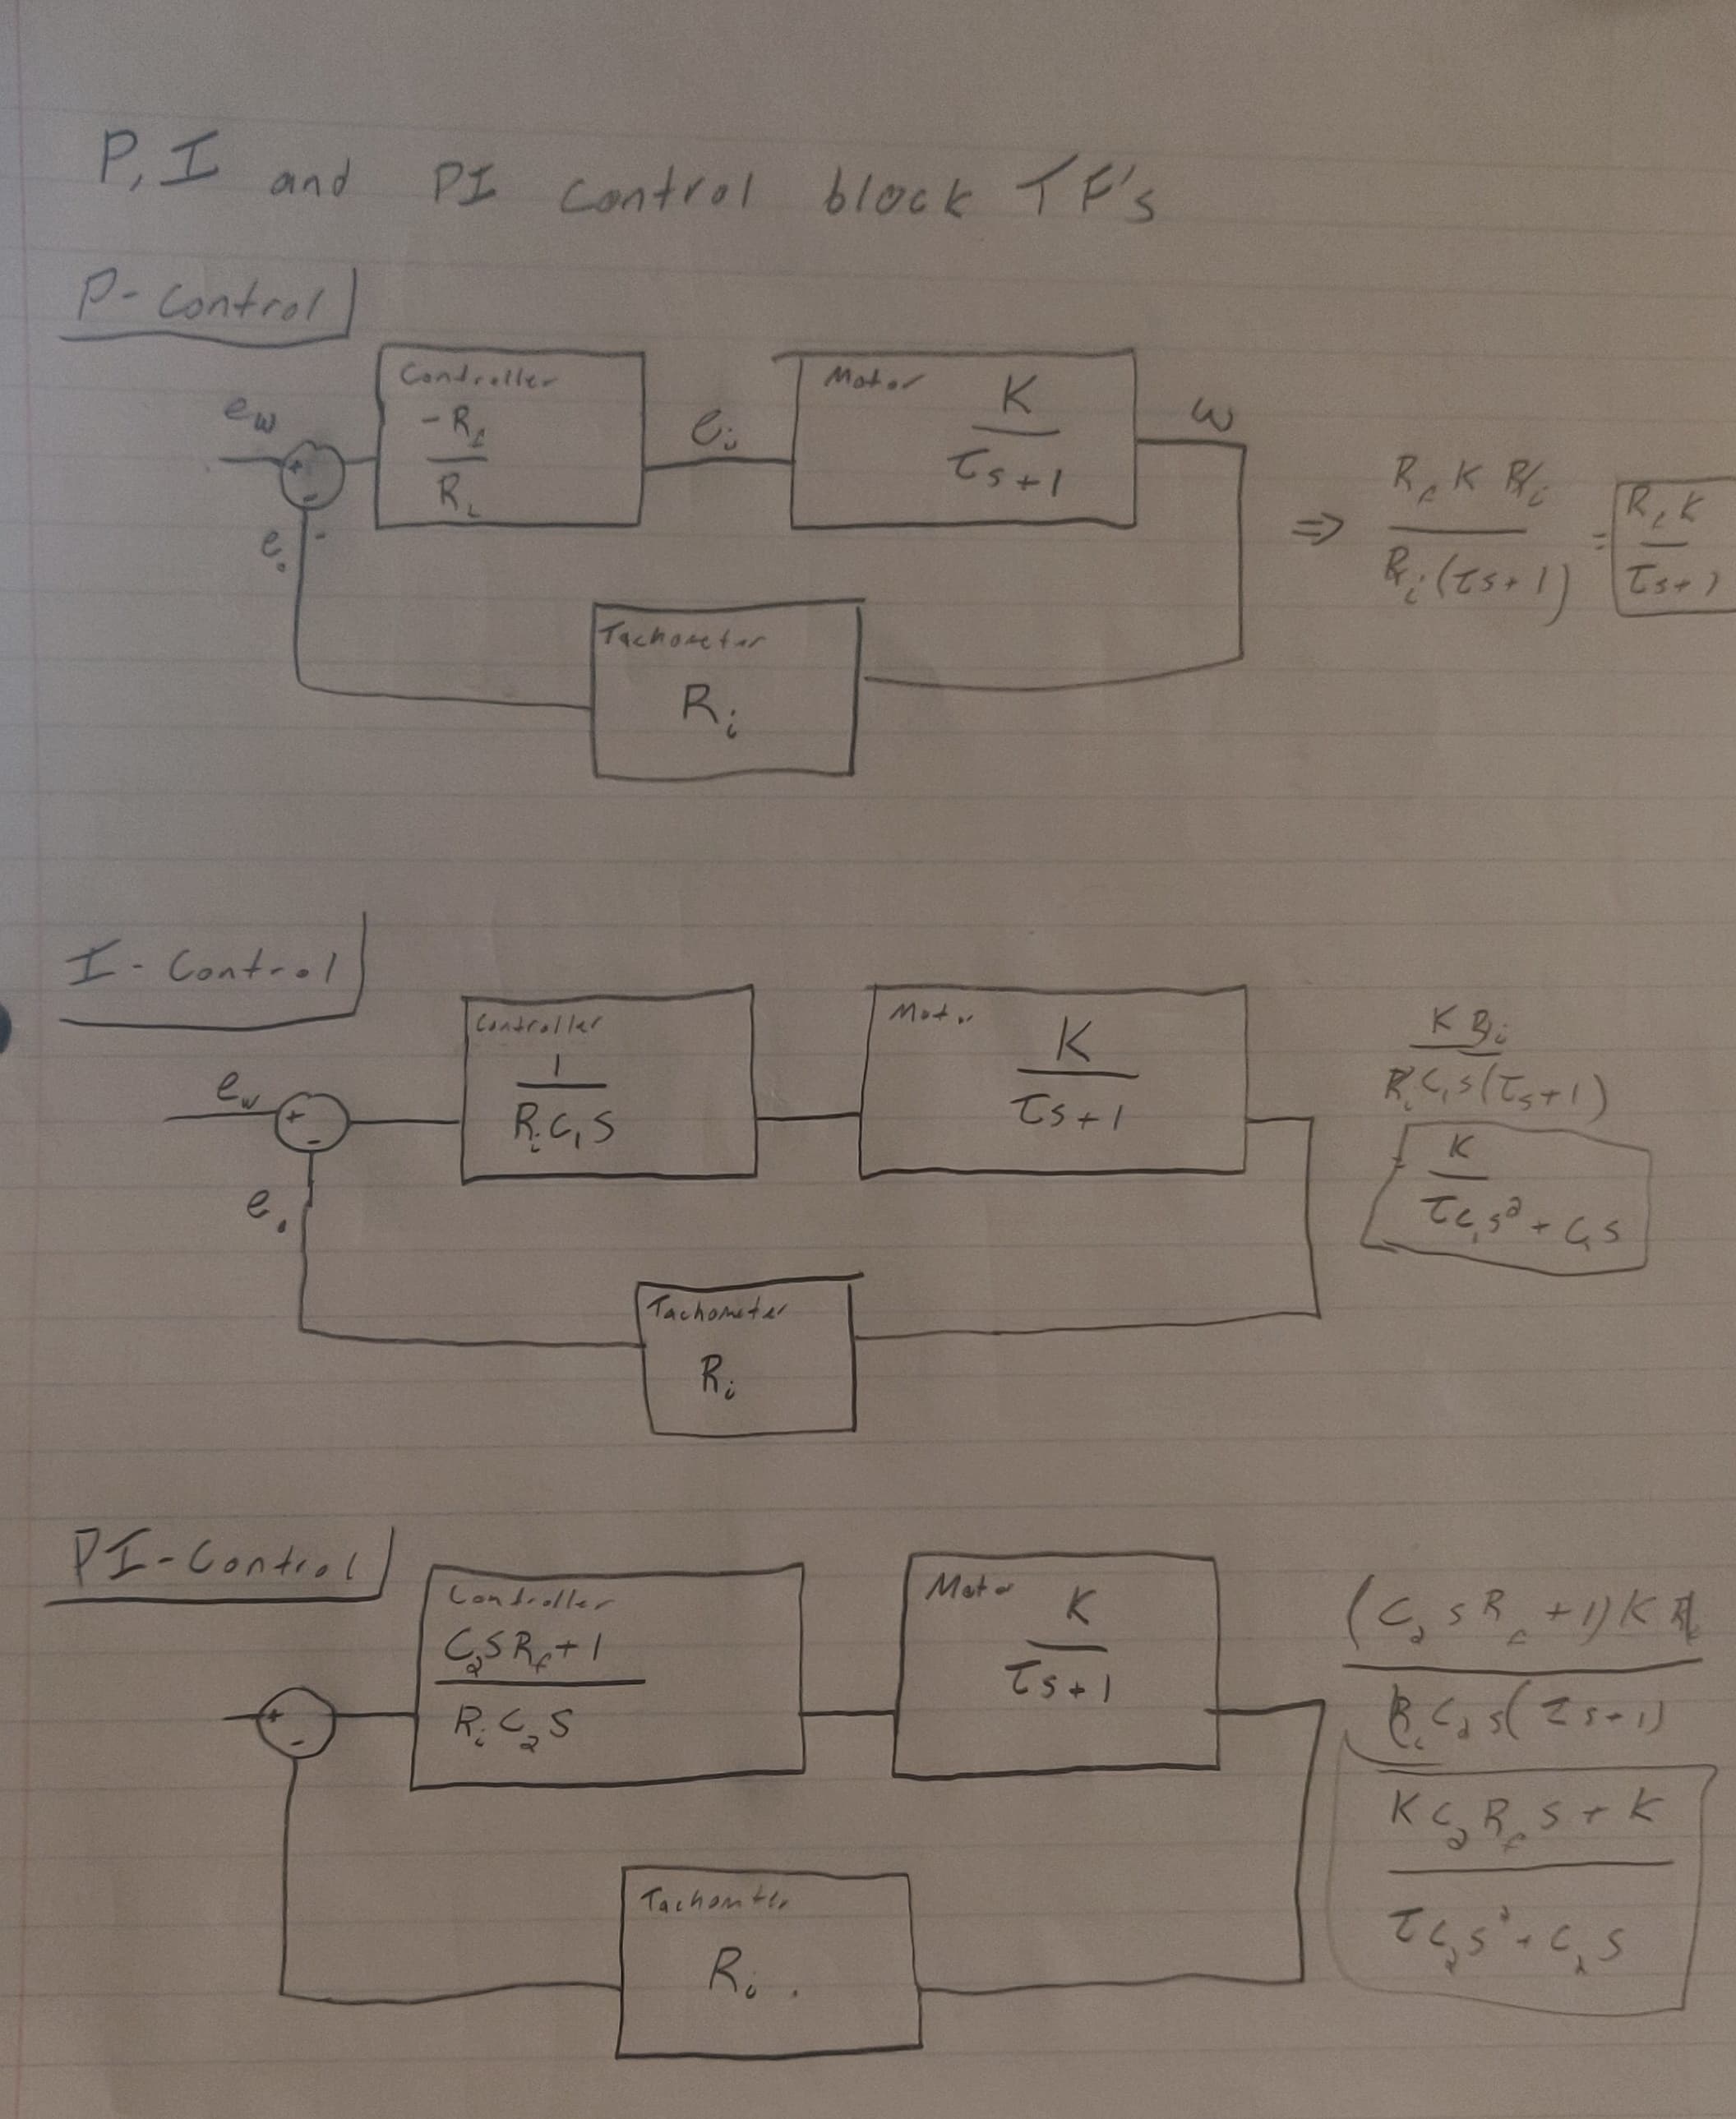 P, I and PI control block TF's
P-Control
Controller
-R_f
R_i
e_w
+
-
e_o
-
e_i
Motor
K
τs+1
ω
Tachometer
R_i
⇒ R_f K R_i
R_i(τs+1)
= R_f K
τs+1
I-Control
Controller
1
R_i C_1 S
e_w
+
-
e_o
Motor
K
τs+1
Tachometer
R_i
K R_i
R_i C_1 s(τs+1)
K
τC_1s² + C_1s
PI-Control
Controller
C_2SR_f+1
R_i C_2 S
+
-
Motor
K
τs+1
Tachomter
R_i .
(C_2 s R_f +1)K R_i
R_i C_2 s(τs+1)
K C_2 R_f s + K
τC_2s² + C_2 s